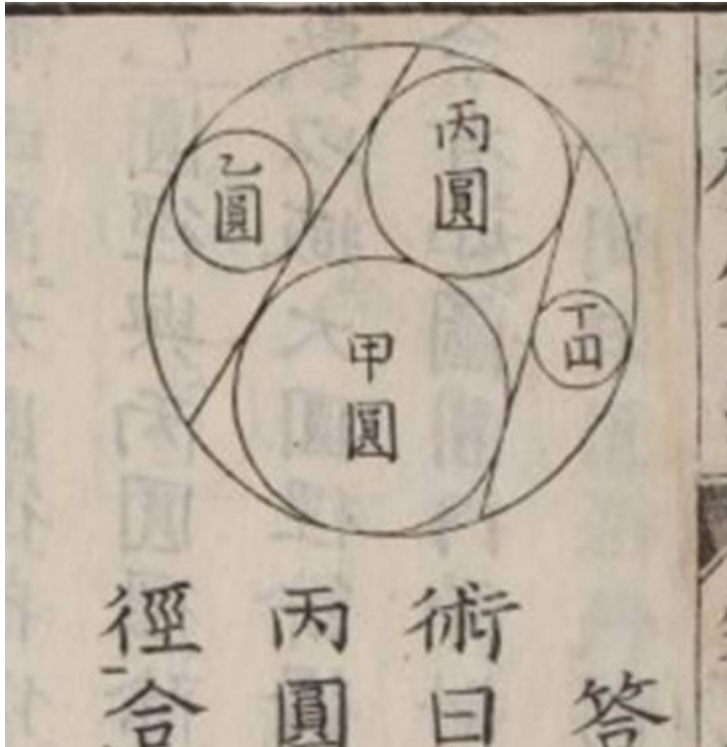 丙圓
乙圓
丁円
甲圓
答
術曰
丙圓
徑合